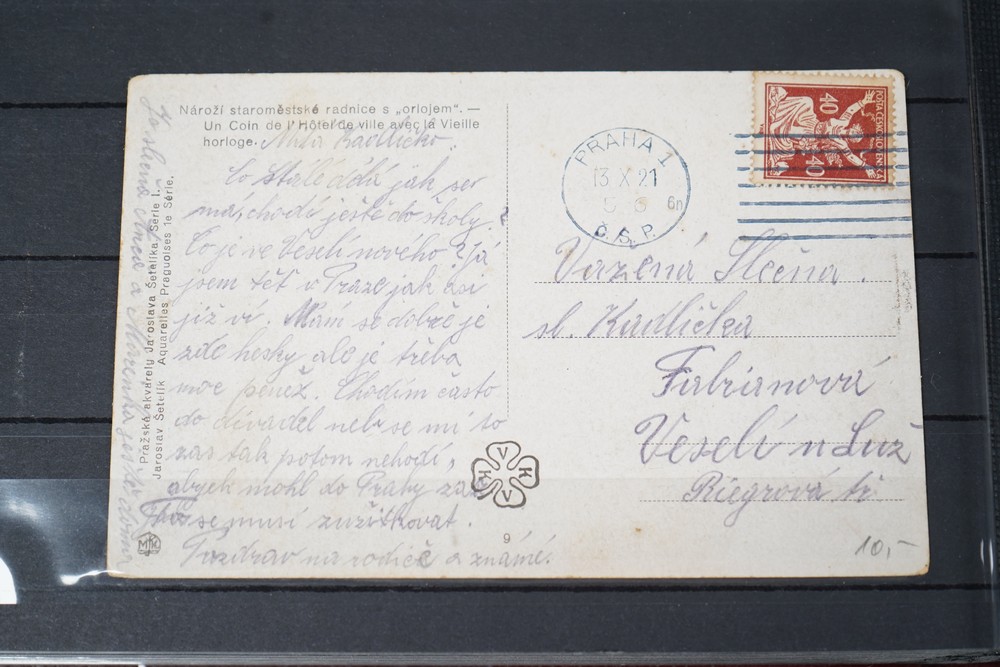 Nároží staroměstské radnice s „orlojem“. —
Un Coin de l'Hôtel de ville avec la Vieille
horloge.
Milá Kadličko.
Co stále dělá jak se
má, chodí ještě do školy?
Co je ve Veselí nového? Já
jsem teť v Praze jak asi
již ví. Mám se dobře je
zde hesky ale je třeba
moc peněz. Chodím často
do divadel neb se mi to
zas tak potom nehodí,
abych mohl do Prahy zas
se musí zužitkovat.
Pozdrav na rodiče a známé.
Pražské akvarely Jaroslava Šetelíka, Serie I.
Jaroslav Šetelík Aquarelles Praguoises 1e Série.
MK
V K V K
9
PRAHA 1
13 X 21
6n
Č.S.P.
POŠTA ČESKOSLOVENSKÁ
40
40
Vážená Slečna
sl. Kadlička
Fabianová
Veselí n Luž
Riegrova tř
10,-